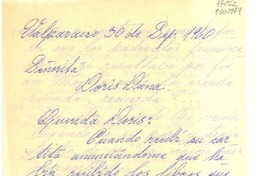 Valparaiso, 30 de Sep. 1960
Señorita
Doris Dana.
Querida Doris:
Cuando recibí su car-
tita anunciándome que ha-
bía recibido los libros que